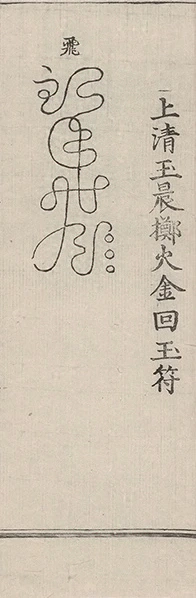 上清玉晨擲火金回玉符
飛